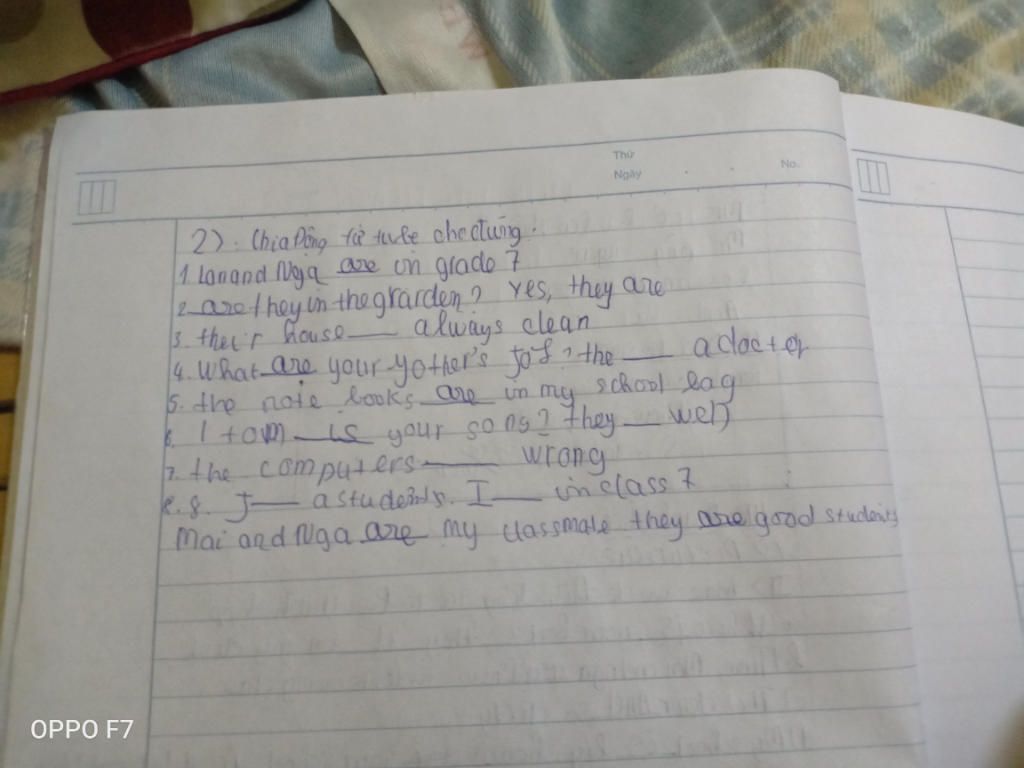 Thứ
Ngày
No.
2). Chia Động từ tu be cho đúng.
1. Lan and Nga are in grade 7
2. are they in the grarden? Yes, they are
3. their house ___ always clean
4. What are your yother's job? the ___ a doctor
5. the note books are in my school bag
6. is your song? they ___ well
7. the computers ___ wrong
8. I ___ a students. I ___ in class 7
Mai and Nga are my classmate they are good students
OPPO F7